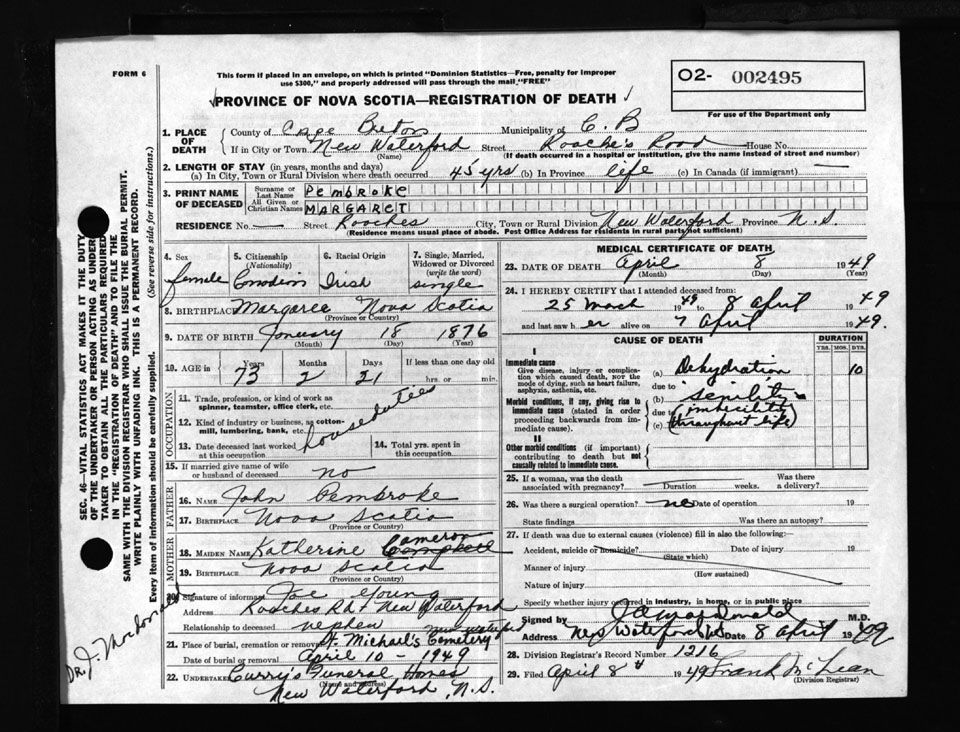 FORM 6
This form if placed in an envelope, on which is printed "Dominion Statistics—Free, penalty for improper
use $300," and properly addressed will pass through the mail "FREE"
O2- 002495
For use of the Department only
PROVINCE OF NOVA SCOTIA—REGISTRATION OF DEATH
1. PLACE OF DEATH County of Cape Breton Municipality of C. B
If in City or Town New Waterford Street Roache's Road House No.
(Name) (If death occurred in a hospital or institution, give the name instead of street and number)
2. LENGTH OF STAY (in years, months and days)
(a) In City, Town or Rural Division where death occurred 45 yrs (b) In Province life (c) In Canada (if immigrant) —
3. PRINT NAME OF DECEASED Surname or Last Name PEMBROKE
All Given or Christian Names MARGARET
RESIDENCE No. — Street Rooches City, Town or Rural Division New Waterford Province N.S.
(Residence means usual place of abode. Post Office Address for residents in rural parts not sufficient)
4. Sex 5. Citizenship (Nationality) 6. Racial Origin 7. Single, Married, Widowed or Divorced (write the word)
female Canadian Irish single
8. BIRTHPLACE Margaree Nova Scotia
(Province or Country)
9. DATE OF BIRTH January 18 1876
(Month) (Day) (Year)
10. AGE in Years Months Days If less than one day old
73 2 21 hrs. or min.
OCCUPATION
11. Trade, profession, or kind of work as spinner, teamster, office clerk, etc.
12. Kind of industry or business, as cotton-mill, lumbering, bank, etc. house duties
13. Date deceased last worked at this occupation 14. Total yrs. spent in this occupation
15. If married give name of wife or husband of deceased no
FATHER
16. NAME John Pembroke
17. BIRTHPLACE Nova Scotia
(Province or Country)
MOTHER
18. MAIDEN NAME Katherine Cameron
19. BIRTHPLACE Nova Scotia
(Province or Country)
20. Signature of informant Joe Young
Address Rooches Rd New Waterford
Relationship to deceased nephew
21. Place of burial, cremation or removal St. Michael's Cemetery New Waterford
Date of burial or removal April 10 - 1949
22. UNDERTAKER Curry's Funeral Home
(Name and address)
New Waterford, N.S.
MEDICAL CERTIFICATE OF DEATH
23. DATE OF DEATH April 8 1949
(Month) (Day) (Year)
24. I HEREBY CERTIFY that I attended deceased from:
25 March 1949 to 8 April 1949
and last saw her alive on 7 April 1949.
CAUSE OF DEATH DURATION
YRS. MOS. DYS.
I
Immediate cause
Give disease, injury or complication which caused death, NOT the mode of dying, such as heart failure, asphyxia, asthenia, etc.
(a) Dehydration 10
due to
Morbid conditions, if any, giving rise to immediate cause (stated in order proceeding backwards from immediate cause).
(b) senility
due to (imbecility
(c) throughout life)
II
Other morbid conditions (if important) contributing to death but not causally related to immediate cause.
25. If a woman, was the death associated with pregnancy? Duration weeks. Was there a delivery?
26. Was there a surgical operation? no Date of operation 19
State findings Was there an autopsy?
27. If death was due to external causes (violence) fill in also the following:—
Accident, suicide or homicide? Date of injury 19
(State which)
Manner of injury
(How sustained)
Nature of injury
Specify whether injury occurred in industry, in home, or in public place
Signed by M.D.
Address New Waterford NS Date 8 April 1949
28. Division Registrar's Record Number 1216
29. Filed April 8th 1949 Frank McLean
(Division Registrar)
SEC. 46—VITAL STATISTICS ACT MAKES IT THE DUTY
OF THE UNDERTAKER OR PERSON ACTING AS UNDERTAKER TO OBTAIN ALL THE PARTICULARS REQUIRED
IN THE "REGISTRATION OF DEATH" AND TO FILE THE
SAME WITH THE DIVISION REGISTRAR WHO SHALL ISSUE THE BURIAL PERMIT.
WRITE PLAINLY WITH UNFADING INK. THIS IS A PERMANENT RECORD.
Every item of information should be carefully supplied. (See reverse side for instructions.)